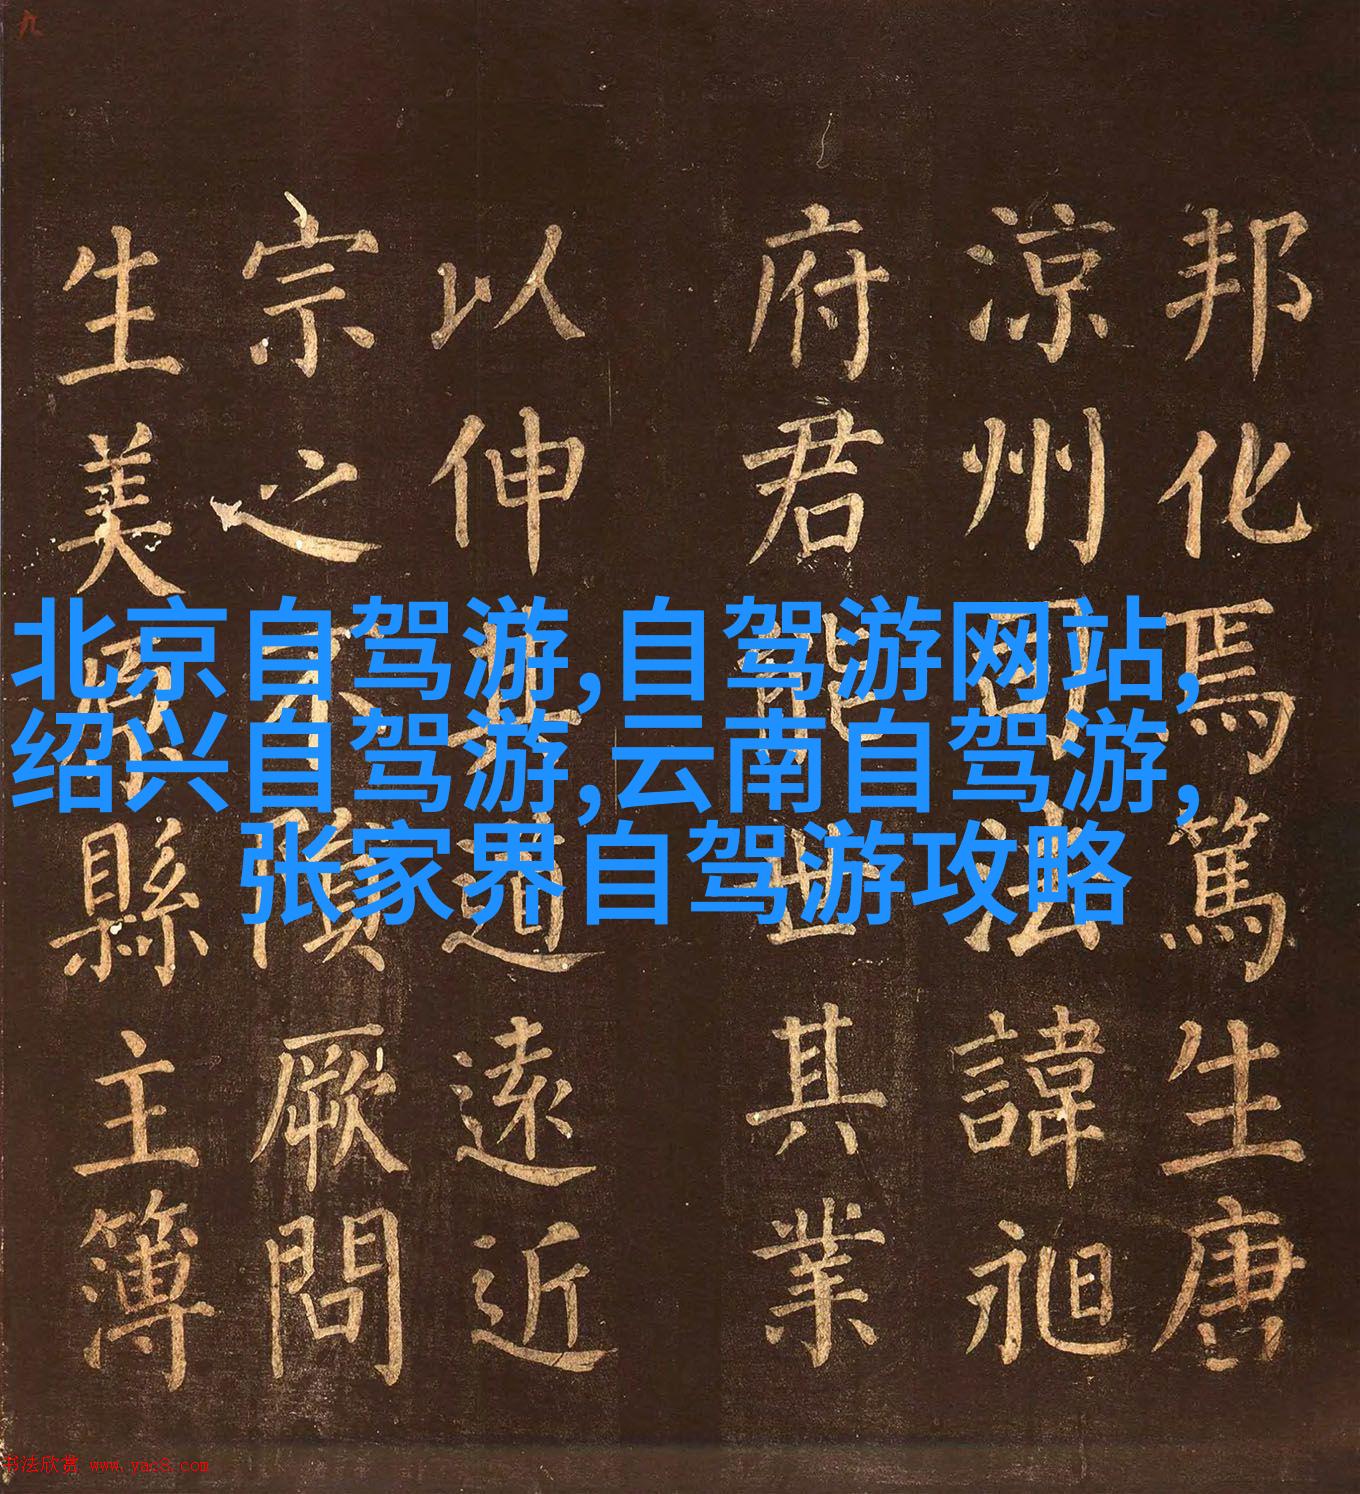 九
邦化焉篤生唐
涼州司法諱昶
府君能世其業
以伸道遠近
宗之不隕厥問
生美原縣主簿
北京自驾游,自驾游网站,
绍兴自驾游,云南自驾游,
张家界自驾游攻略
书法欣赏 www.yac8.com